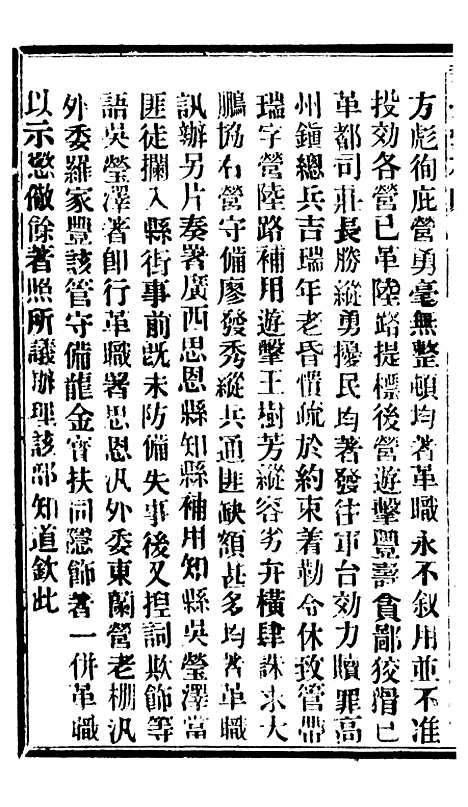 方彪徇庇營勇毫無整頓均著革職永不叙用並不准
投効各營已革陸路提標後營遊擊豐壽貪鄙狡猾已
革都司莊長勝縱勇擾民均著發往軍台効力贖罪高
州鎮總兵吉瑞年老昏憒疏於約束着勒令休致管帶
瑞字營陸路補用遊擊王樹芳縱容劣弁橫肆誅求大
鵬協右營守備廖發秀縱兵通匪缺額甚多均著革職
訊辦另片奏署廣西思恩縣知縣補用知縣吳瑩澤當
匪徒攔入縣街事前既未防備失事後又揑詞欺飾等
語吳瑩澤著即行革職署思恩汛外委東蘭營老棚汛
外委羅家豐該管守備龍金寶扶同隱飾著一併革職
以示懲儆餘著照所議辦理該部知道欽此